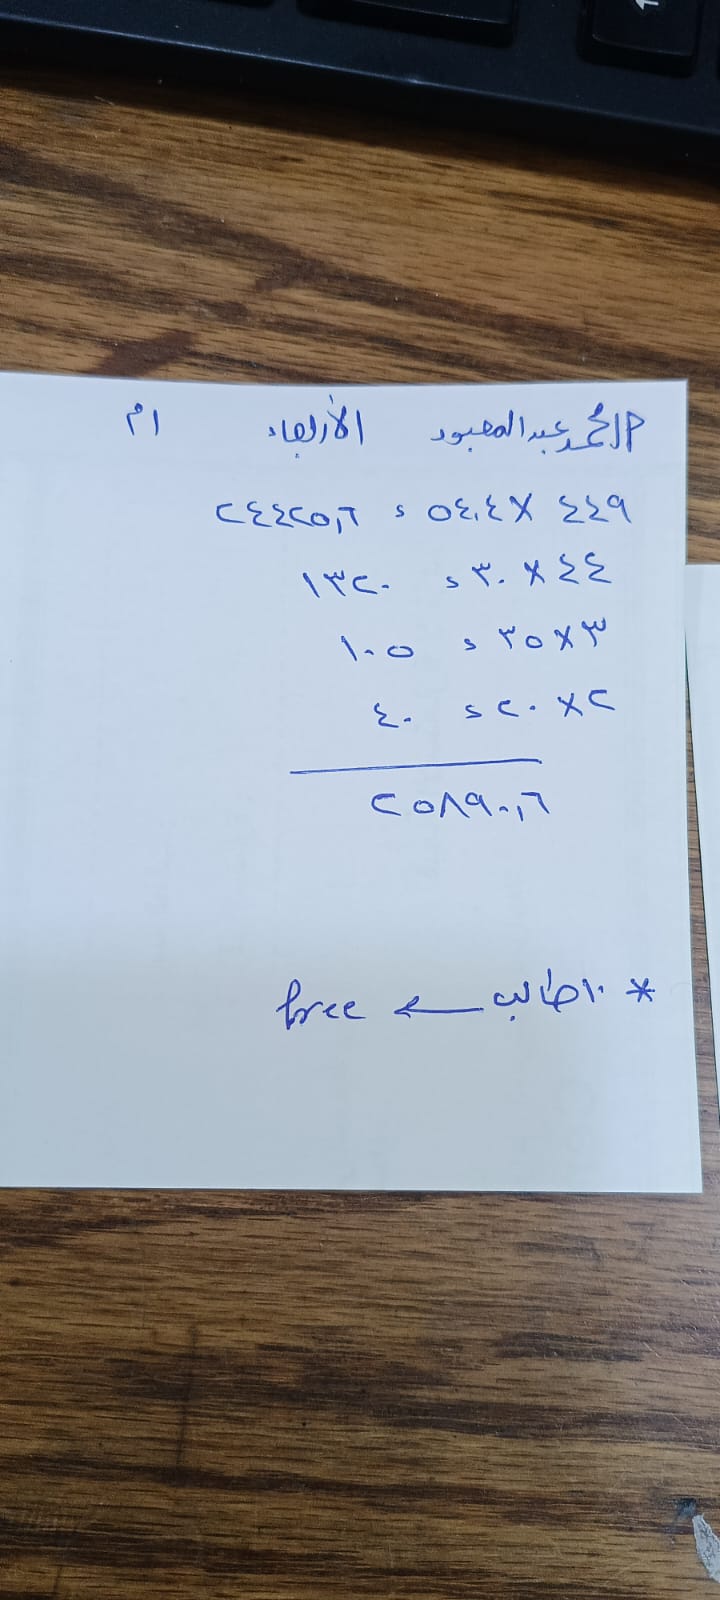 م/ محمد عبد المعبود الأربعاء ١م
٤٤٩ × ٥٤,٤ = ٢٤٤٢٥,٦
٤٤ × ٣٠ = ١٣٢٠
٣ × ٣٥ = ١٠٥
٢ × ٢٠ = ٤٠
٢٥٨٩٠,٦
* ١٠ طالب ← free